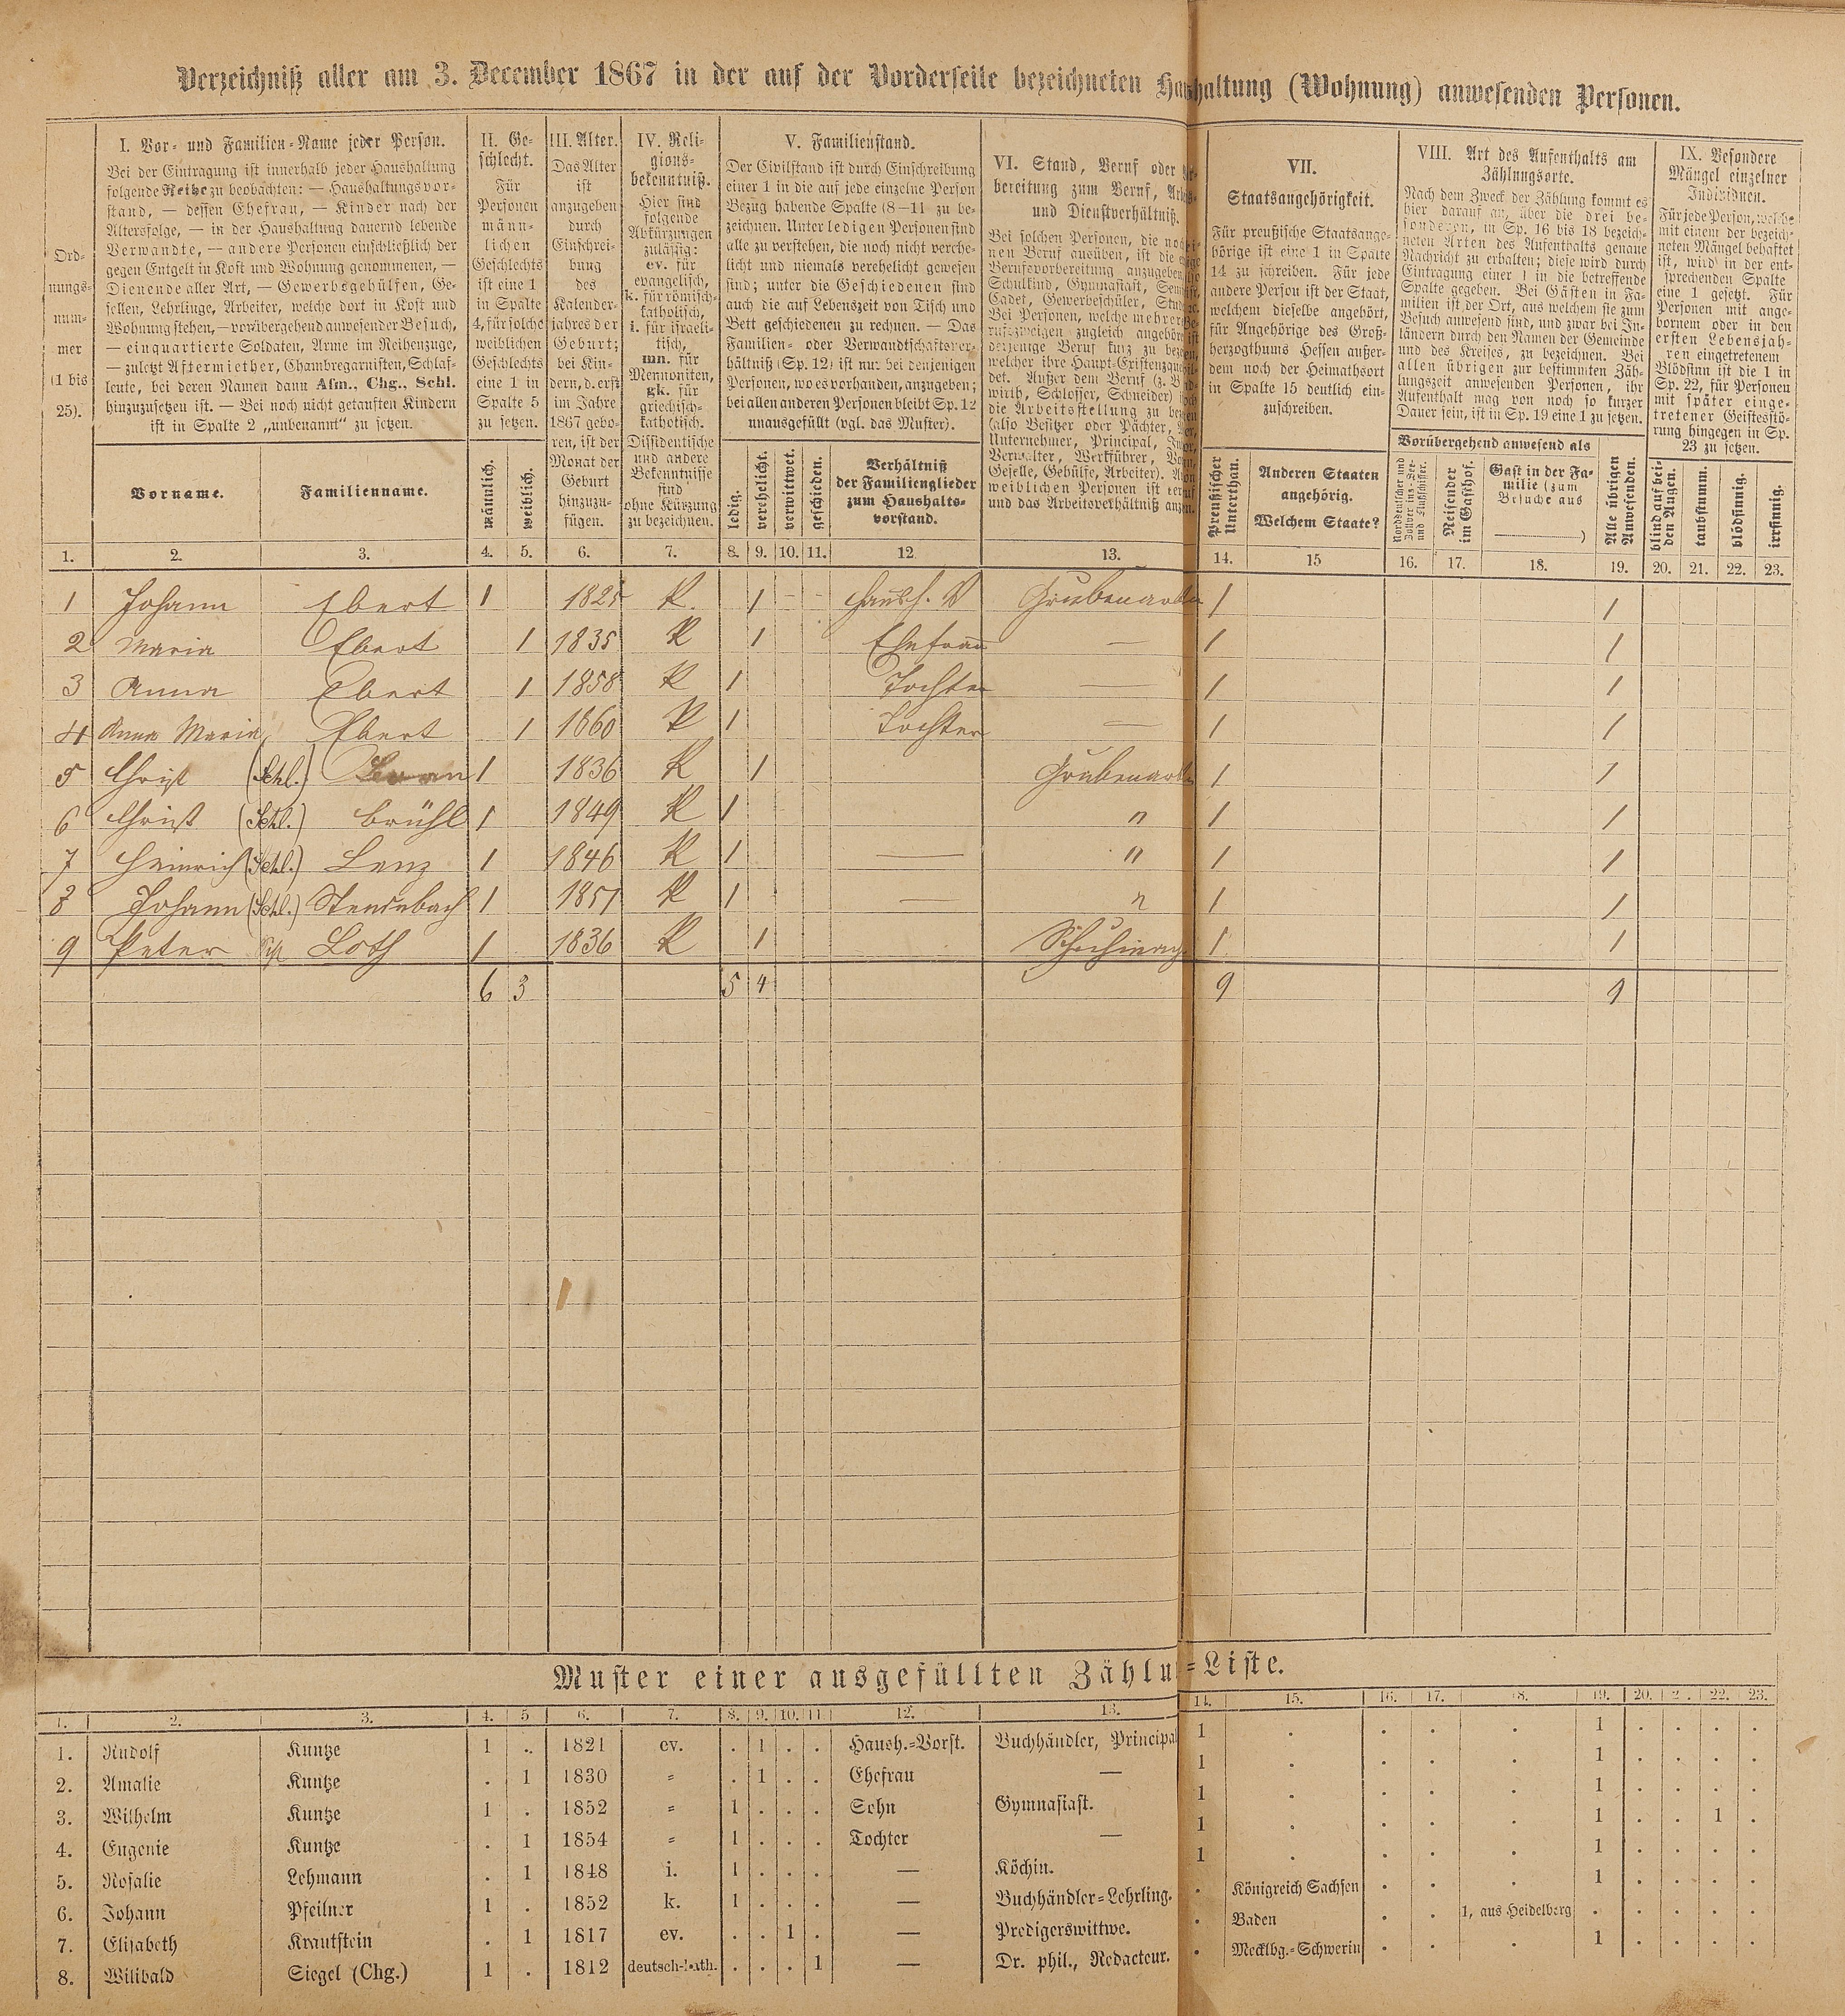 Verzeichniß aller am 3. December 1867 in der auf der Vorderseite bezeichneten Haushaltung (Wohnung) anwesenden Personen.
Ord-
nungs-
num-
mer
(1 bis
25).
I. Vor- und Familien-Name jeder Person.
Bei der Eintragung ist innerhalb jeder Haushaltung
folgende Reihe zu beobachten: — Haushaltungsvor-
stand, — dessen Ehefrau, — Kinder nach der
Altersfolge, — in der Haushaltung dauernd lebende
Verwandte, — andere Personen einschließlich der
gegen Entgelt in Kost und Wohnung genommenen, —
Dienende aller Art, — Gewerbsgehülfen, Ge-
sellen, Lehrlinge, Arbeiter, welche dort in Kost und
Wohnung stehen, — vorübergehend anwesender Besuch,
— einquartierte Soldaten, Arme im Reihenzuge,
— zuletzt Aftermiether, Chambregarnisten, Schlaf-
leute, bei deren Namen dann Afm., Chg., Schl.
hinzuzusetzen ist. — Bei noch nicht getauften Kindern
ist in Spalte 2 „unbenannt“ zu setzen.
Vorname.
Familienname.
II. Ge-
schlecht.
Für
Personen
männ-
lichen
Geschlechts
ist eine 1
in Spalte
4, für solche
weiblichen
Geschlechts
eine 1 in
Spalte 5
zu setzen.
männlich.
weiblich.
III. Alter.
Das Alter
ist
anzugeben
durch
Einschrei-
bung
des
Kalender-
jahres der
Geburt;
bei Kin-
dern, d. erst
im Jahre
1867 gebo-
ren, ist der
Monat der
Geburt
hinzuzu-
fügen.
IV. Reli-
gions-
bekenntniß.
Hier sind
folgende
Abkürzungen
zulässig:
ev. für
evangelisch,
k. für römisch-
katholisch,
i. für israeli-
tisch,
mn. für
Mennoniten,
gk. für
griechisch-
katholisch.
Dissidentische
und andere
Bekenntnisse
sind
ohne Kürzung
zu bezeichnen.
V. Familienstand.
Der Civilstand ist durch Einschreibung
einer 1 in die auf jede einzelne Person
Bezug habende Spalte (8—11 zu be-
zeichnen. Unter ledigen Personen sind
alle zu verstehen, die noch nicht verehe-
licht und niemals verehelicht gewesen
sind; unter die Geschiedenen sind
auch die auf Lebenszeit von Tisch und
Bett geschiedenen zu rechnen. — Das
Familien- oder Verwandtschaftsver-
hältniß (Sp. 12) ist nur bei denjenigen
Personen, wo es vorhanden, anzugeben;
bei allen anderen Personen bleibt Sp. 12
unausgefüllt (vgl. das Muster).
ledig.
verehelicht.
verwittwet.
geschieden.
Verhältniß
der Familienglieder
zum Haushalts-
vorstand.
VI. Stand, Beruf oder
bereitung zum Beruf,
und Dienstverhältniß.
Bei solchen Personen, die
nen Beruf ausüben, ist die
Berufsvorbereitung anzugeben
Schulkind, Gymnasiast,
Cadet, Gewerbeschüler,
Bei Personen, welche mehrer
rufszweigen zugleich angehör
derjenige Beruf kurz zu
welcher ihre Haupt-Existenzquelle
det. Außer dem Beruf (z. B.
wirth, Schlosser, Schneider)
die Arbeitsstellung zu
(also Besitzer oder Pächter,
Unternehmer, Principal,
Verwalter, Werkführer,
Geselle, Gehülfe, Arbeiter).
weiblichen Personen ist
und das Arbeitsverhältniß
VII.
Staatsangehörigkeit.
Für preußische Staatsange-
hörige ist eine 1 in Spalte
14 zu schreiben. Für jede
andere Person ist der Staat,
welchem dieselbe angehört,
für Angehörige des Groß-
herzogthums Hessen außer-
dem noch der Heimathsort
in Spalte 15 deutlich ein-
zuschreiben.
Preußischer
Unterthan.
Anderen Staaten
angehörig.
Welchem Staate?
VIII. Art des Aufenthalts am
Zählungsorte.
Nach dem Zweck der Zählung kommt es
hier darauf an, über die drei be-
sonderen, in Sp. 16 bis 18 bezeich-
neten Arten des Aufenthalts genaue
Nachricht zu erhalten; diese wird durch
Eintragung einer 1 in die betreffende
Spalte gegeben. Bei Gästen in Fa-
milien ist der Ort, aus welchem sie zum
Besuch anwesend sind, und zwar bei In-
ländern durch den Namen der Gemeinde
und des Kreises, zu bezeichnen. Bei
allen übrigen zur bestimmten Zäh-
lungszeit anwesenden Personen, ihr
Aufenthalt mag von noch so kurzer
Dauer sein, ist in Sp. 19 eine 1 zu setzen.
Vorübergehend anwesend als
Norddeutscher und
Zollver ins-See-
und Flußschiffer.
Reisender
im Gasthof.
Gast in der Fa-
milie (zum
Besuche aus
)
Alle übrigen
Anwesenden.
IX. Besondere
Mängel einzelner
Individuen.
Für jede Person, welche
mit einem der bezeich-
neten Mängel behaftet
ist, wird in der ent-
sprechenden Spalte
eine 1 gesetzt. Für
Personen mit ange-
bornem oder in den
ersten Lebensjah-
ren eingetretenem
Blödsinn ist die 1 in
Sp. 22, für Personen
mit später einge-
tretener Geistesstö-
rung hingegen in Sp.
23 zu setzen.
blind auf bei-
den Augen.
taubstumm.
blödsinnig.
irrsinnig.
1. 2. 3. 4. 5. 6. 7. 8. 9. 10. 11. 12 13. 14. 15 16. 17. 18. 19. 20. 21. 22. 23.
1 Johann Ebert 1 1825 K. 1 - - Haush. V Grubenarb 1 1
2 Maria Ebert 1 1835 K 1 Ehefrau — 1 1
3 Anna Ebert 1 1858 K 1 Tochter — 1 1
4 Anna Maria Ebert 1 1860 K 1 Tochter — 1 1
5 Christ (Schl.) 1 1836 K 1 Grubenarb 1 1
6 Christ (Schl.) Brühl 1 1849 K 1 " 1 1
7 Heinrich (Schl.) Lenz 1 1846 K 1 — " 1 1
8 Johann (Schl.) 1 1851 K 1 — " 1 1
9 Peter Loth 1 1836 K 1 Schuhmach 1 1
6 3 5 4 9 9
Muster einer ausgefüllten Zählu=Liste.
1. 2. 3. 4. 5 6. 7. 8. 9. 10. 11 12. 13. 14. 15. 16. 17. 18. 19. 20. 2 . 22. 23.
1. Rudolf Kuntze 1 . 1821 ev. . 1 . . Haush.=Vorst. Buchhändler, Principal 1 . . . . 1 . . . .
2. Amalie Kuntze . 1 1830 = . 1 . . Ehefrau — 1 . . . . 1 . . . .
3. Wilhelm Kuntze 1 . 1852 = 1 . . . Sohn Gymnasiast. 1 . . . . 1 . . . .
4. Eugenie Kuntze . 1 1854 = 1 . . . Tochter — 1 . . . . 1 . . 1 .
5. Rosalie Lehmann . 1 1848 i. 1 . . . — Köchin. 1 . . . . 1 . . . .
6. Johann Pfeilner 1 . 1852 k. 1 . . . — Buchhändler=Lehrling. . Königreich Sachsen . . . 1 . . . .
7. Elisabeth Krautstein . 1 1817 ev. . . 1 . — Predigerswittwe. . Baden . . 1, aus Heidelberg . . . . .
8. Wilibald Siegel (Chg.) 1 . 1812 deutsch-kath. . . . 1 — Dr. phil., Redacteur. . Mecklbg.=Schwerin . . . 1 . . . .